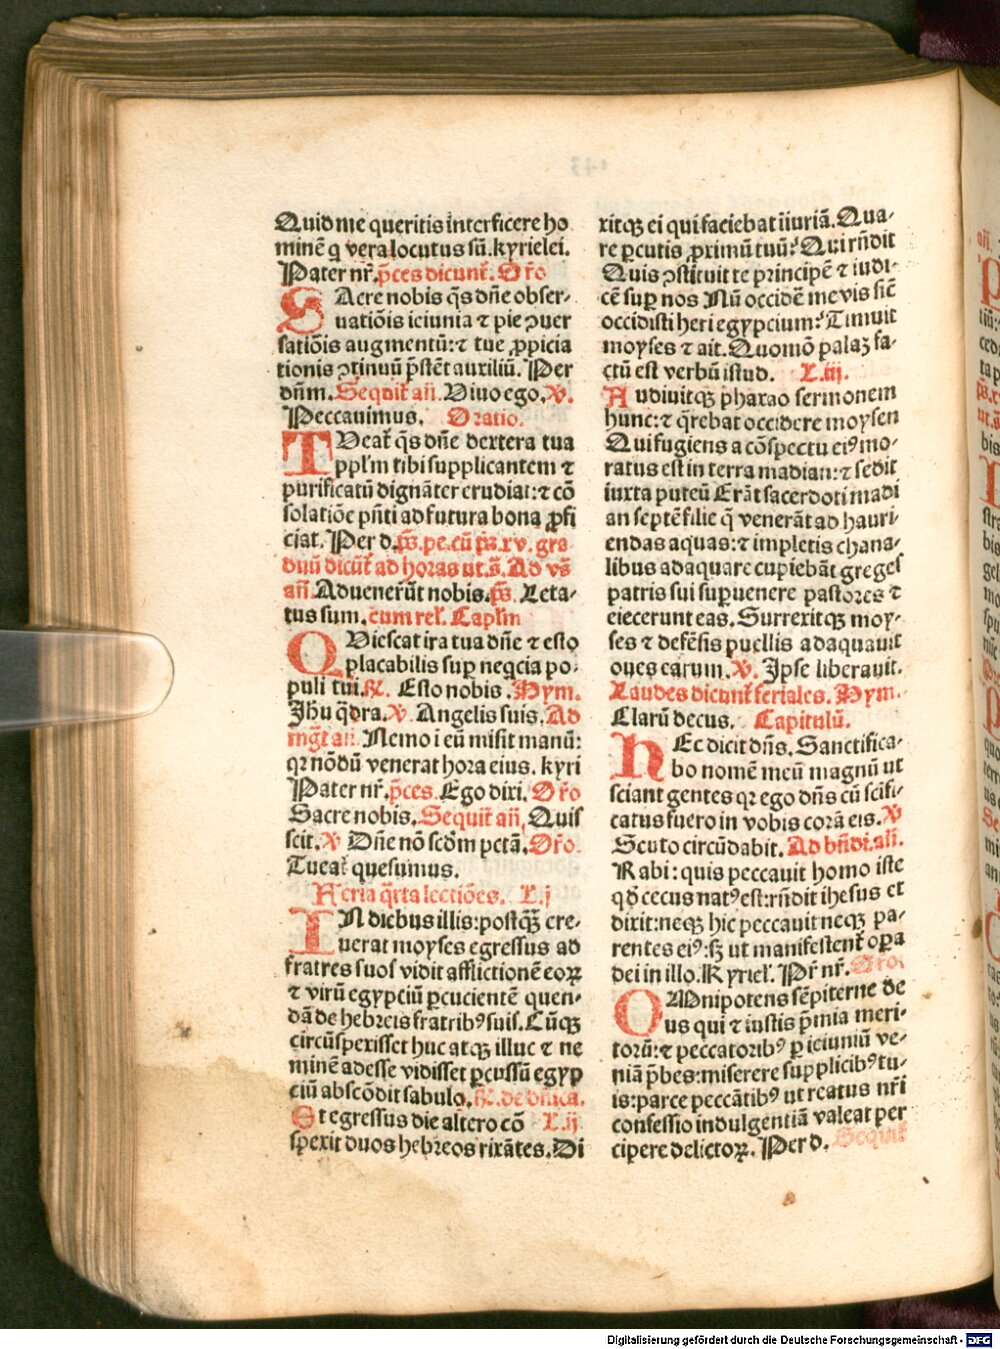 Quid me queritis interficere ho
minē q̄ vera locutus sū. kyrielei.
Pater nr̄. p̄ces dicunt̄. Or̄o
SAcre nobis q̄s dn̄e obser-
uatiōis ieiunia ⁊ pie ꝯuer
satiōis augmentū: ⁊ tue ꝓpicia
tionis ↄtinuū p̄stēt auxiliū. Per
dn̄m. Seqūit an̄. Viuo ego. ℣.
Peccauimus. Oratio.
TVeat̄ q̄s dn̄e dextera tua
ppl̄m tibi supplicantem ⁊
purificatū dignāter erudiat: ⁊ cō
solatiōe pn̄ti ad futura bona ꝓfi
ciat. Per d. p̄s. pe. cū p̄s. xv. gra
duū dicūt̄ ad horas ut. s̄. Ad vs̄
an̄. Aduenerūt nobis. p̄s. Leta-
tus sum. cum rel̄. Capl̄m
QViescat ira tua dn̄e ⁊ esto
placabilis sup̄ neq̄cia po-
puli tui. ℟. Esto nobis. Hym.
Jhu q̄dra. ℣. Angelis suis. Ad
mḡt an̄. Nemo i eū misit manū:
qꝛ nōdū venerat hora eius. kyri
Pater nr̄. p̄ces. Ego dixi. Or̄o
Sacre nobis. Sequit̄ an̄. Quis
scit. ℣ Dn̄e nō scd̄m pctā. Or̄o.
Tueat̄ quesumus.
Feria q̄rta lectiōes. L. j
IN diebus illis: postq̄ꝫ cre-
uerat moyses egressus ad
fratres suos vidit afflictionē eoꝝ
⁊ virū egypciū ꝑcucientē quen-
dā de hebreis fratribꝰ suis. Cūqꝫ
circūspexisset huc atqꝫ illuc ⁊ ne
minē adesse vidisset ꝑcussū egyp
ciū abscōdit sabulo. ℟. de dn̄ica.
Et egressus die altero cō L. ij
spexit duos hebreos rixātes. Di
xitqꝫ ei qui faciebat iiuriā. Qua-
re ꝑcutis ꝓximū tuū? Qui rn̄dit
Quis ↄstituit te principē ⁊ iudi-
cē sup̄ nos Nū occidē me vis sic̄
occidisti heri egypcium? Timuit
moyses ⁊ ait. Quomō palaꝫ fa-
ctū est verbū istud. L. iij.
Audiuitqꝫ pharao sermonem
hunc: ⁊ q̄rebat occidere moysen
Qui fugiens a cōspectu eiꝰ mo-
ratus est in terra madian: ⁊ sedit
iuxta puteū Erāt sacerdoti madi
an septē filie q̄ venerāt ad hauri-
endas aquas: ⁊ impletis chana-
libus adaquare cupiebāt greges
patris sui sup̄uenere pastores ⁊
eiecerunt eas. Surrexitqꝫ moy-
ses ⁊ defēsis puellis adaquauit
oues earum. ℣. Ipse liberauit.
Laudes dicunt̄ feriales. Hym.
Clarū decus. Capitulū.
HEc dicit dn̄s. Sanctifica-
bo nomē meū magnū ut
sciant gentes qꝛ ego dn̄s cū scifi-
catus fuero in vobis corā eis. ℣
Scuto circūdabit. Ad bn̄di. an̄.
Rabi: quis peccauit homo iste
qd̄ cecus natꝰ est: rn̄dit ihesus et
dixit: neqꝫ hic peccauit neqꝫ pa-
rentes eiꝰ: sꝫ ut manifestent̄ oꝑa
dei in illo. Kyriel̄. Pr̄ nr̄. Or̄o.
OMnipotens sēpiterne de
us qui ⁊ iustis p̄mia meri-
torū: ⁊ peccatoribꝰ ꝑ ieiuniū ve-
niā p̄bes: miserere supplicibꝰ tu-
is: parce peccātibꝰ ut reatus nr̄i
confessio indulgentiā valeat per
cipere delictoꝝ. Per d. Sequit̄
Digitalisierung gefördert durch die Deutsche Forschungsgemeinschaft - DFG